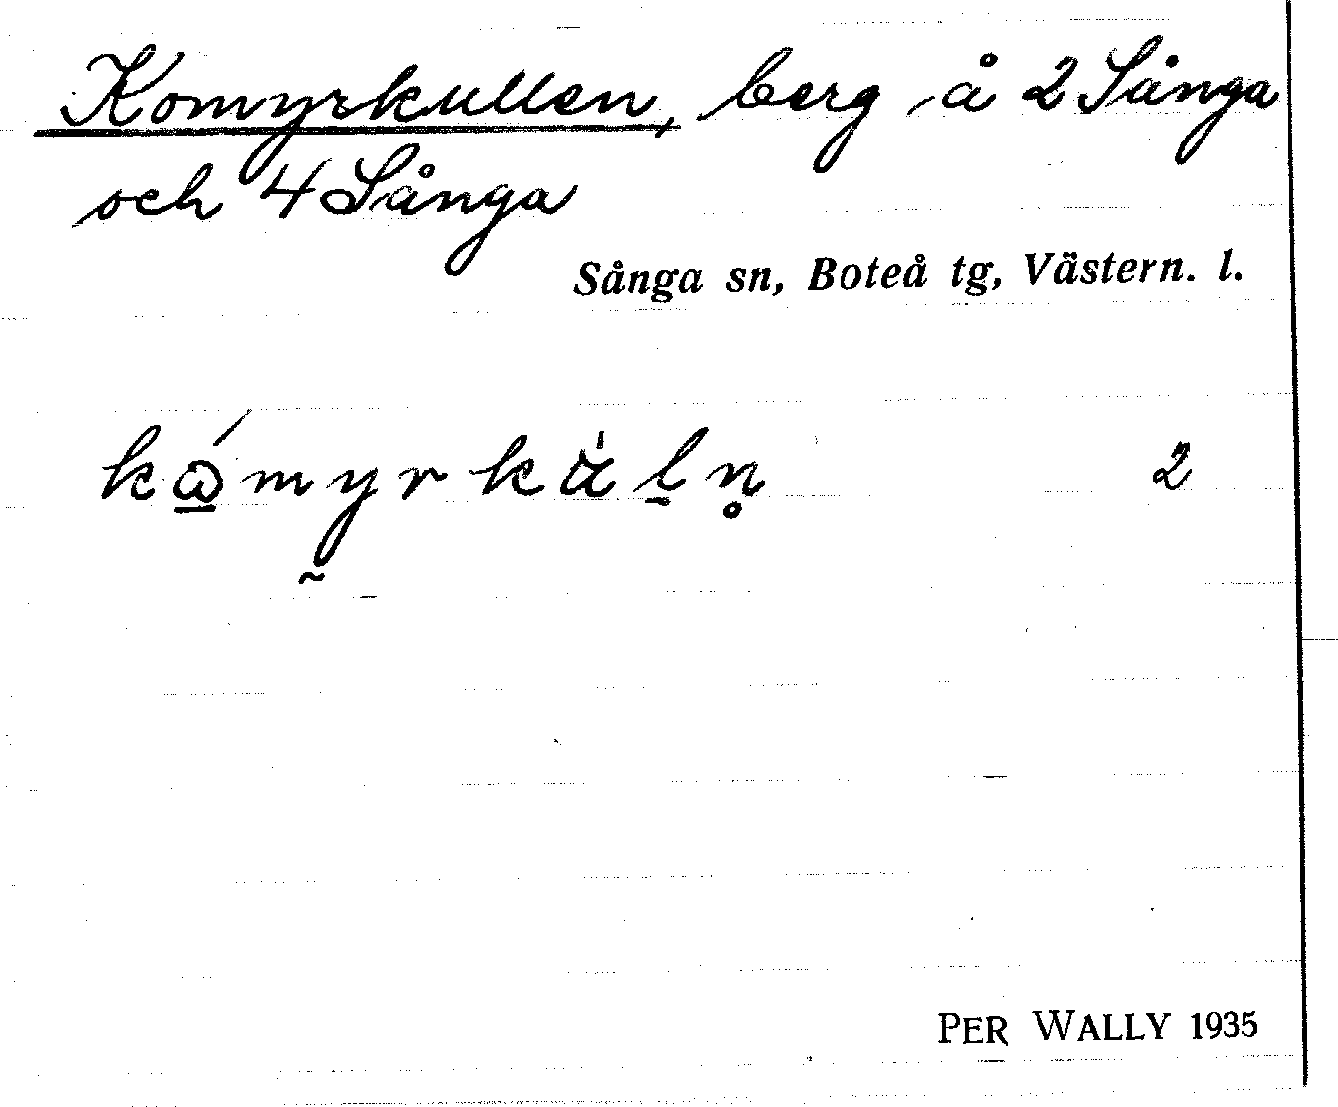 Komyrkullen, berg å 2 Sånga
och 4 Sånga
Sånga sn, Boteå tg, Västern. l.
2
PER WALLY 1935